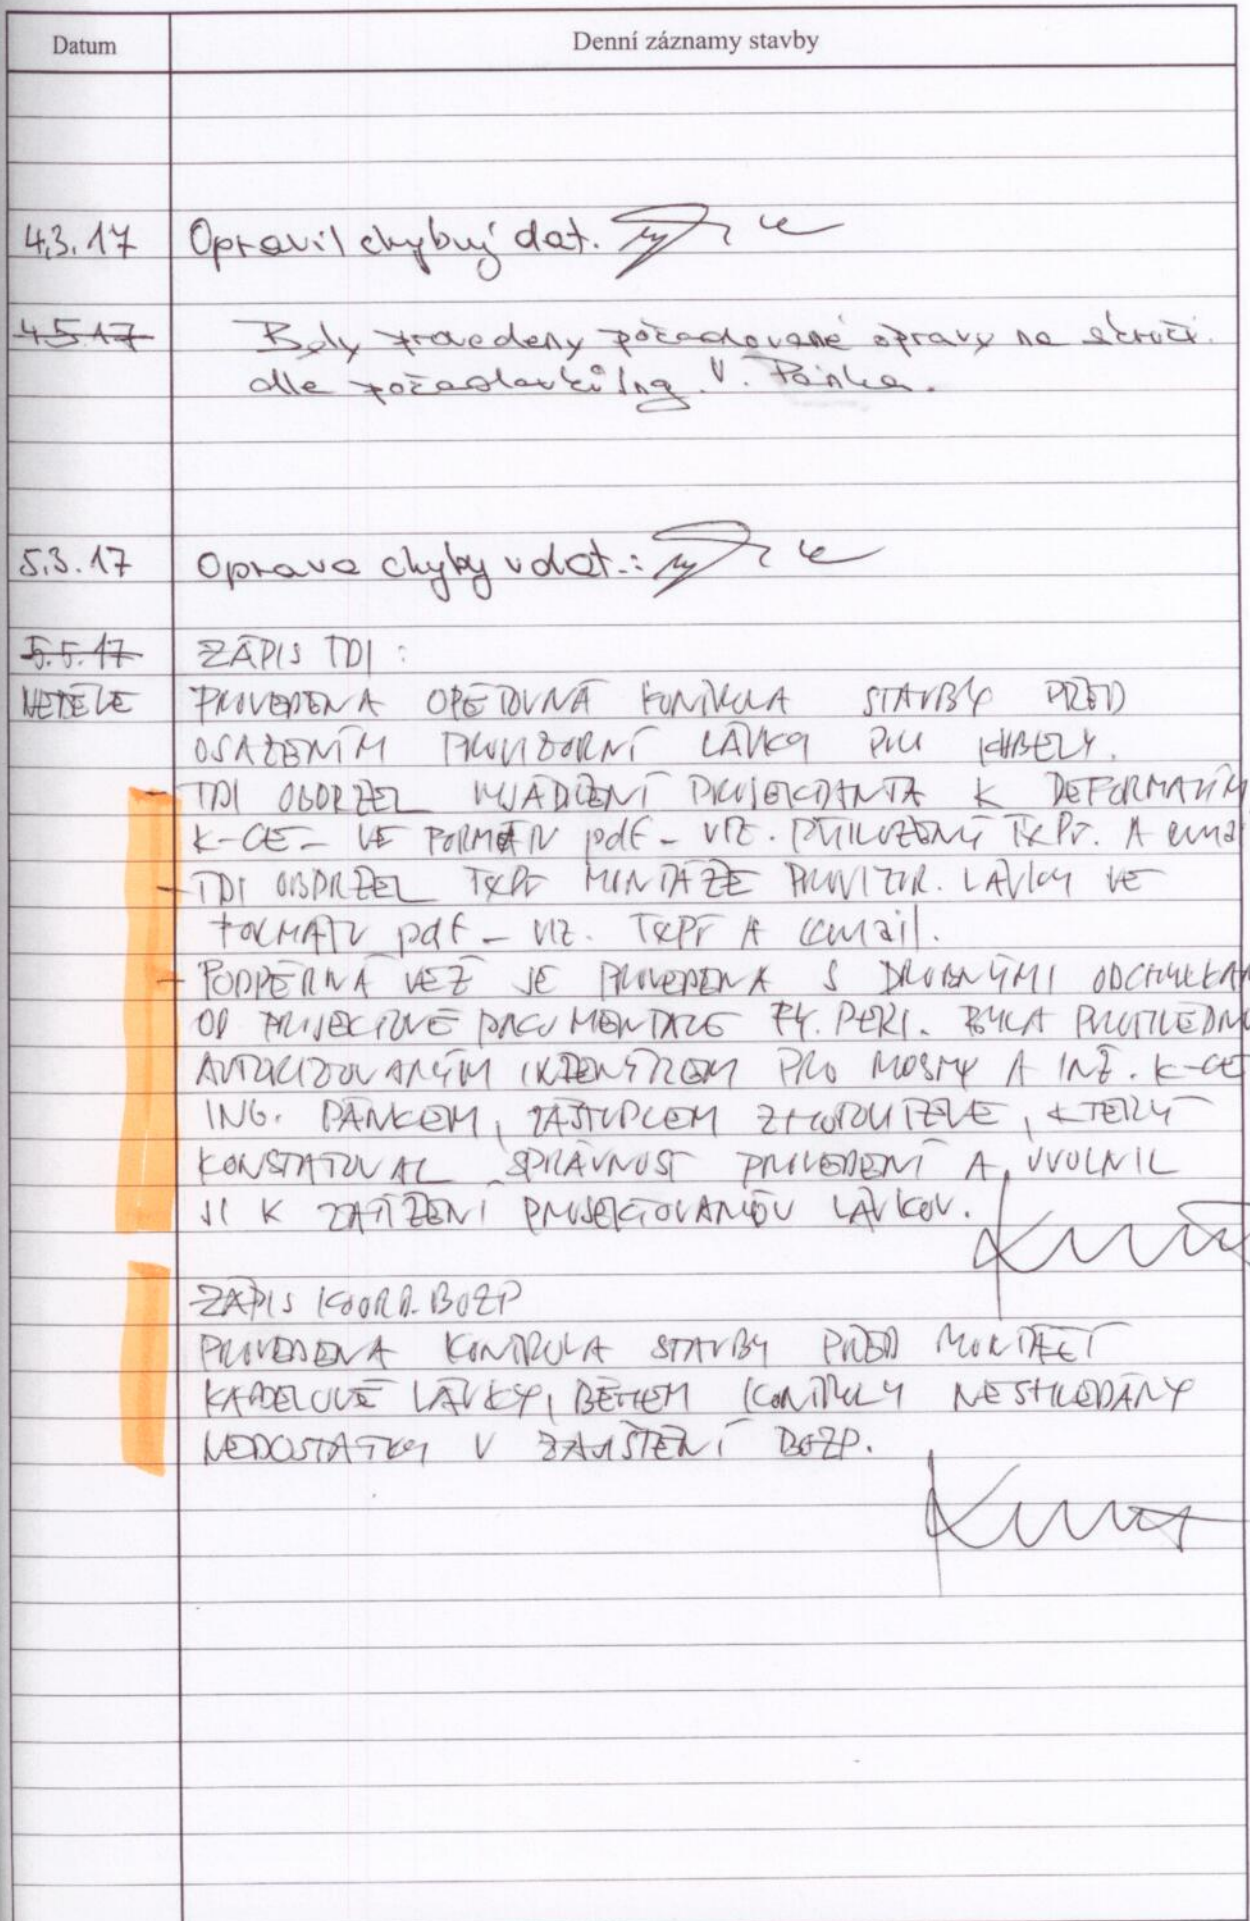 Datum Denní záznamy stavby
4.3.17 Opravil chybný dat.
4.5.17 Byly provedeny požadované opravy na skruži
dle požadavků Ing. V. Pánka.
5.3.17 Oprava chyby v dat.:
5.5.17 ZÁPIS TDI :
NEDĚLE PROVEDENA OPĚTOVNÁ KONTROLA STAVBY PŘED
OSAZENÍM PROVIZORNÍ LÁVKY PRO KABELY.
- TDI OBDRŽEL VYJÁDŘENÍ PROJEKTANTA K DEFORMACÍM
K-CE - VE FORMÁTU pdf - VIZ. PŘILOŽENÝ A email
- TDI OBDRŽEL MONTÁŽE PROVIZOR. LÁVKY VE
FORMÁTU pdf - VIZ. A email.
- PODPĚRNÁ VĚŽ JE PROVEDENA S DROBNÝMI ODCHYLKAM
OD PROJEKTOVÉ DOKUMENTACE FY. PERI. BYLA PROHLÉDNU
AUTORIZOVANÝM INŽENÝREM PRO MOSTY A INŽ. K-CE
ING. PÁNKEM, ZÁSTUPCEM ZHOTOVITELE, KTERÝ
KONSTATOVAL SPRÁVNOST PROVEDENÍ A UVOLNIL
JI K ZATÍŽENÍ PROJEKTOVANOU LÁVKOU.
ZÁPIS KOORD. BOZP
PROVEDENA KONTROLA STAVBY PŘED MONTÁŽÍ
KABELOVÉ LÁVKY, BĚHEM KONTROLY NESHLEDÁNY
NEDOSTATKY V ZAJIŠTĚNÍ BOZP.